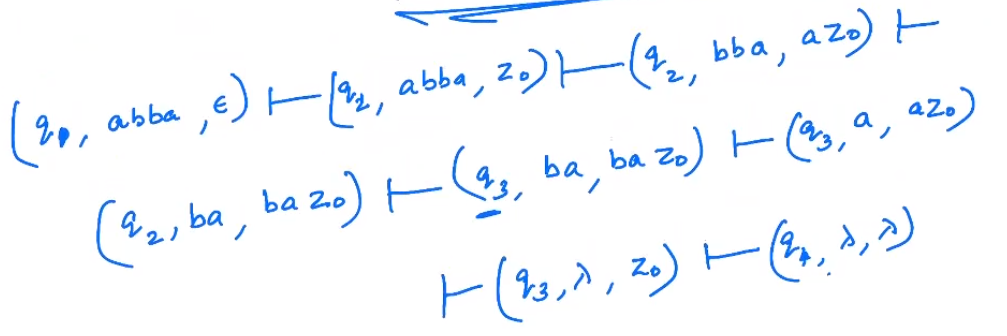 (q₁, abba, ε) ⊢ (q₂, abba, z₀) ⊢ (q₂, bba, az₀) ⊢
(q₂, ba, baz₀) ⊢ (q₃, ba, baz₀) ⊢ (q₃, a, az₀)
⊢ (q₃, λ, z₀) ⊢ (q₄, λ, λ)